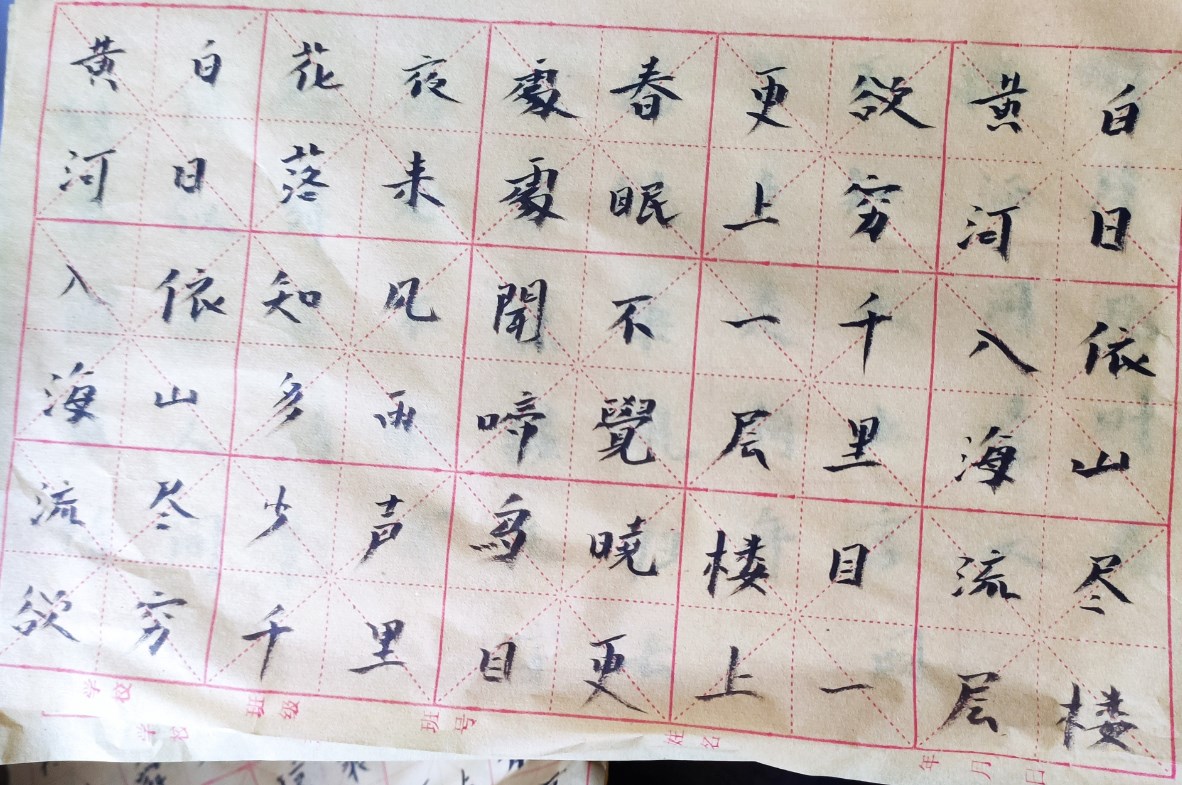 白日依山尽
黄河入海流
欲穷千里目
更上一层楼
春眠不覺曉
處處聞啼鳥
夜来风雨声
花落知多少
白日依山尽
黄河入海流
欲穷千里目更上一层楼
学校
班级
班号
姓名
年月日